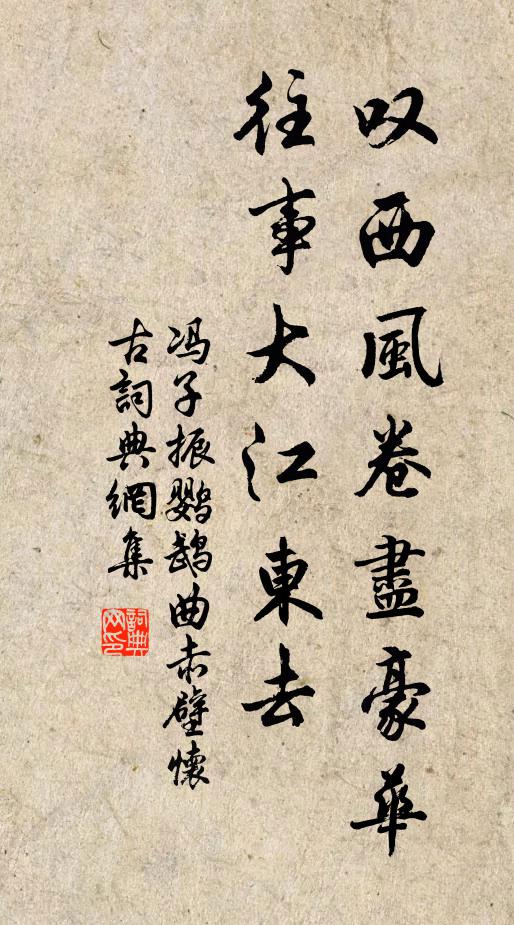 叹西風卷盡豪華
往事大江東去
冯子振鹦鹉曲赤壁懷
古詞典網集
詞典
网印